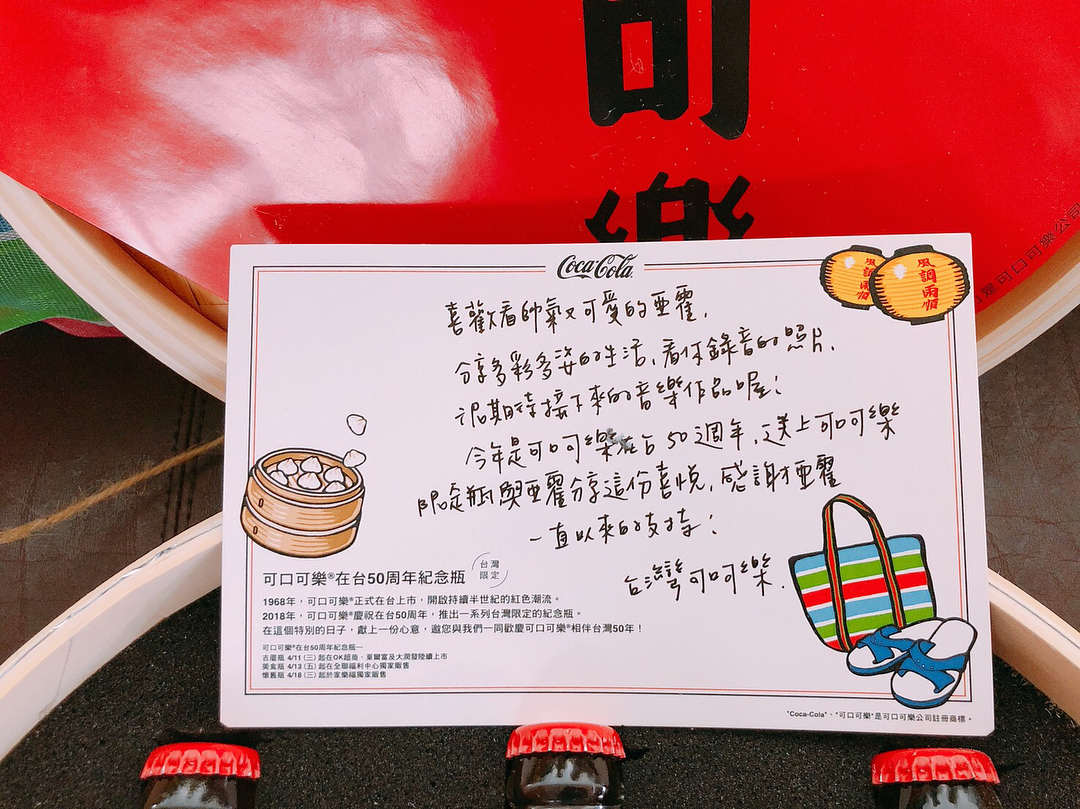 可
樂
是可口可樂公司
Coca-Cola
風調雨順
風調雨順
喜歡看帥氣又可愛的亞霏,
分享多彩多姿的生活,看你錄音的照片,
很期待接下來的音樂作品喔!
今年是可口可樂在台50週年,送上可口可樂
限定瓶與亞霏分享這份喜悅,感謝亞霏
一直以來的支持!
台灣可口可樂.
可口可樂®在台50周年紀念瓶 台灣限定
1968年,可口可樂®正式在台上市,開啟持續半世紀的紅色潮流。
2018年,可口可樂®慶祝在台50周年,推出一系列台灣限定的紀念瓶。
在這個特別的日子,獻上一份心意,邀您與我們一同歡慶可口可樂®相伴台灣50年!
可口可樂®在台50周年紀念瓶—
古厝瓶 4/11 (三) 起在OK超商、萊爾富及大潤發陸續上市
美食瓶 4/13 (五) 起在全聯福利中心獨家販售
懷舊瓶 4/18 (三) 起於家樂福獨家販售
"Coca-Cola"、"可口可樂"是可口可樂公司註冊商標。